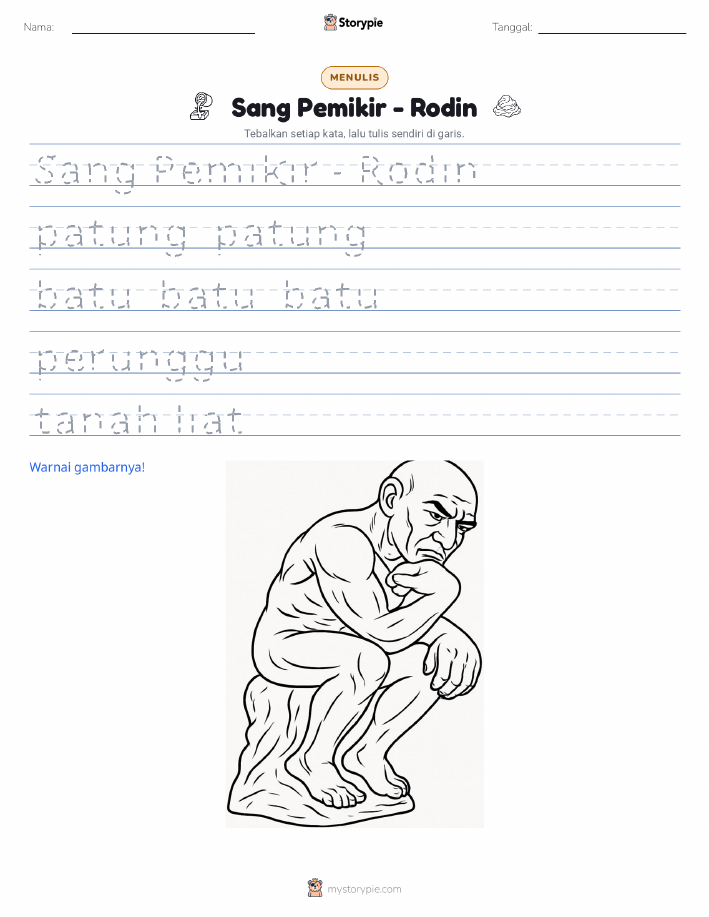 Nama:
Storypie
Tanggal:
MENULIS
Sang Pemikir - Rodin
Tebalkan setiap kata, lalu tulis sendiri di garis.
Sang Pemikir - Rodin
patung patung
batu batu batu
perunggu
tanah liat
Warnai gambarnya!
mystorypie.com